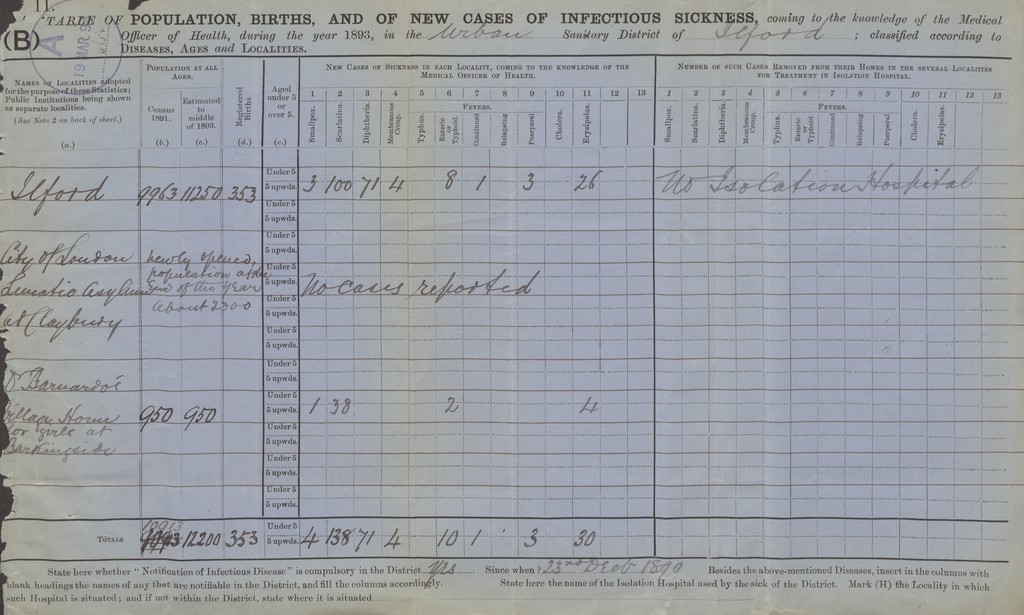 11.
(B)
A
19 MAR 9
TABLE OF POPULATION, BIRTHS, AND OF NEW CASES OF INFECTIOUS SICKNESS, coming to the knowledge of the Medical
Officer of Health, during the year 1893, in the Urban Sanitary District of Ilford ; classified according to
DISEASES, AGES AND LOCALITIES.
NAMES OF LOCALITIES adopted for the purpose of these Statistics; Public Institutions being shown as separate localities.
(See Note 2 on back of sheet.)
(a.)
POPULATION AT ALL AGES.
Census 1891.
(b.)
Estimated to middle of 1893.
(c.)
Registered Births.
(d.)
Aged under 5 or over 5.
(e.)
NEW CASES OF SICKNESS IN EACH LOCALITY, COMING TO THE KNOWLEDGE OF THE MEDICAL OFFICER OF HEALTH.
1 2 3 4 5 6 7 8 9 10 11 12 13
Smallpox. Scarlatina. Diphtheria. Membranous Croup. FEVERS. Typhus. Enteric or Typhoid. Continued Relapsing Puerperal Cholera. Erysipelas.
NUMBER OF SUCH CASES REMOVED FROM THEIR HOMES IN THE SEVERAL LOCALITIES FOR TREATMENT IN ISOLATION HOSPITAL.
1 2 3 4 5 6 7 8 9 10 11 12 13
Smallpox. Scarlatina. Diphtheria. Membranous Croup. FEVERS. Typhus. Enteric or Typhoid. Continued Relapsing Puerperal Cholera. Erysipelas.
Under 5
Ilford 9963 11250 353 5 upwds. 3 100 71 4 8 1 3 26 No Isolation Hospital
Under 5
5 upwds.
Under 5
City of London newly opened, 5 upwds.
population at the Under 5
Lunatic Asylum End of the Year 5 upwds. No cases reported
about 2300 Under 5
at Claybury 5 upwds.
Under 5
5 upwds.
Under 5
Dr Barnardo's 5 upwds.
Under 5
Village Home 950 950 5 upwds. 1 38 2 4
for girls at Under 5
Barkingside 5 upwds.
Under 5
5 upwds.
Under 5
5 upwds.
10913 Under 5
TOTALS 12200 353 5 upwds. 4 138 71 4 10 1 3 30
State here whether "Notification of Infectious Disease" is compulsory in the District Yes Since when? 23rd Decb 1890 Besides the above-mentioned Diseases, insert in the columns with
blank headings the names of any that are notifiable in the District, and fill the columns accordingly. State here the name of the Isolation Hospital used by the sick of the District. Mark (H) the Locality in which
such Hospital is situated; and if not within the District, state where it is situated